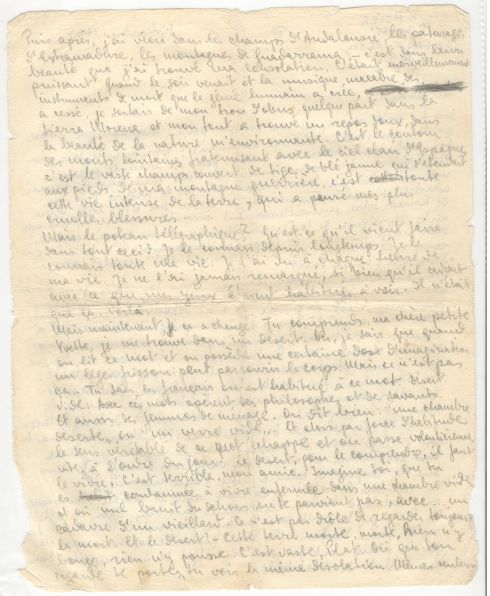 Puis après, j'ai vécu dans le champs d'Andalousie, les pâturages
d'Extramadure, les montagnes de Guadarrama – c'est dans leurs
beauté que j'ai trouvé ma consolation. C'était merveilleusement
puissant quand le soir venait et la musique macabre des
instruments de mort que le génie humain a crée,
a cessé, je sortais de mon trou d'obus, quelque part dans la
Sierra Morena et mon tout a trouvé un repos doux dans
la beauté de la nature m'environnante. C'est le contour
des monts lointains fraternisant avec le ciel clair d'Espagne,
c'est le vaste champs couvert de tiges de blé jaune qui s'étendait
aux pieds de ma montagne guerrière, c'est toute
cette vie intense de la terre, qui a pansé mes plus
cruelles blessures –
Mais le poteau télégraphique? Qu'est-ce qu'il vient faire
dans tout ceci? Je le connais depuis longtemps. Je le
connais toute une vie. Je l'ai vu à chaque heure de
ma vie. Je ne l'ai jamais remarqué, si bien qu'il
avec ce que mes yeux étaient habitués à voir. Il n'était
que ça, voilà
Mais maintenant, ça a changé. Tu comprends, ma chère petite
Yvette, je me trouve dans un désert. Oui, je sais que quand
on lit ce mot et on possède une certaine dose d'imagination
un léger frisson peut parcourir le corps. Mais ce n'est pas
ça. Tu sais en français on est habitué à ce mot: désert
vide. Avec ces mots opèrent des philosophes et des savants
et aussi des femmes de ménage. On dit bien: "une chambre
déserte", ou "un verre vide". Et alors par force d'habitude
le sens véritable de ce mot échappe et on passe
vite à l'ordre du jour. Le désert, pour le comprendre, il faut
le vivre. C'est terrible, mon amie. Imagine-toi, que tu
es condamnée à vivre enfermée dans une chambre vide
et où nul bruit du dehors ne te parvient pas, avec ... un
cadavre d'un vieillard. Ce n'est pas drôle de regarder toujours
la mort. Et le désert! – Cette terre morte, morte, Rien n'y
bouge, rien n'y pousse. C'est vaste, plat. Où que ton
regard te portes, tu vois la même désolation. Mêmes couleurs